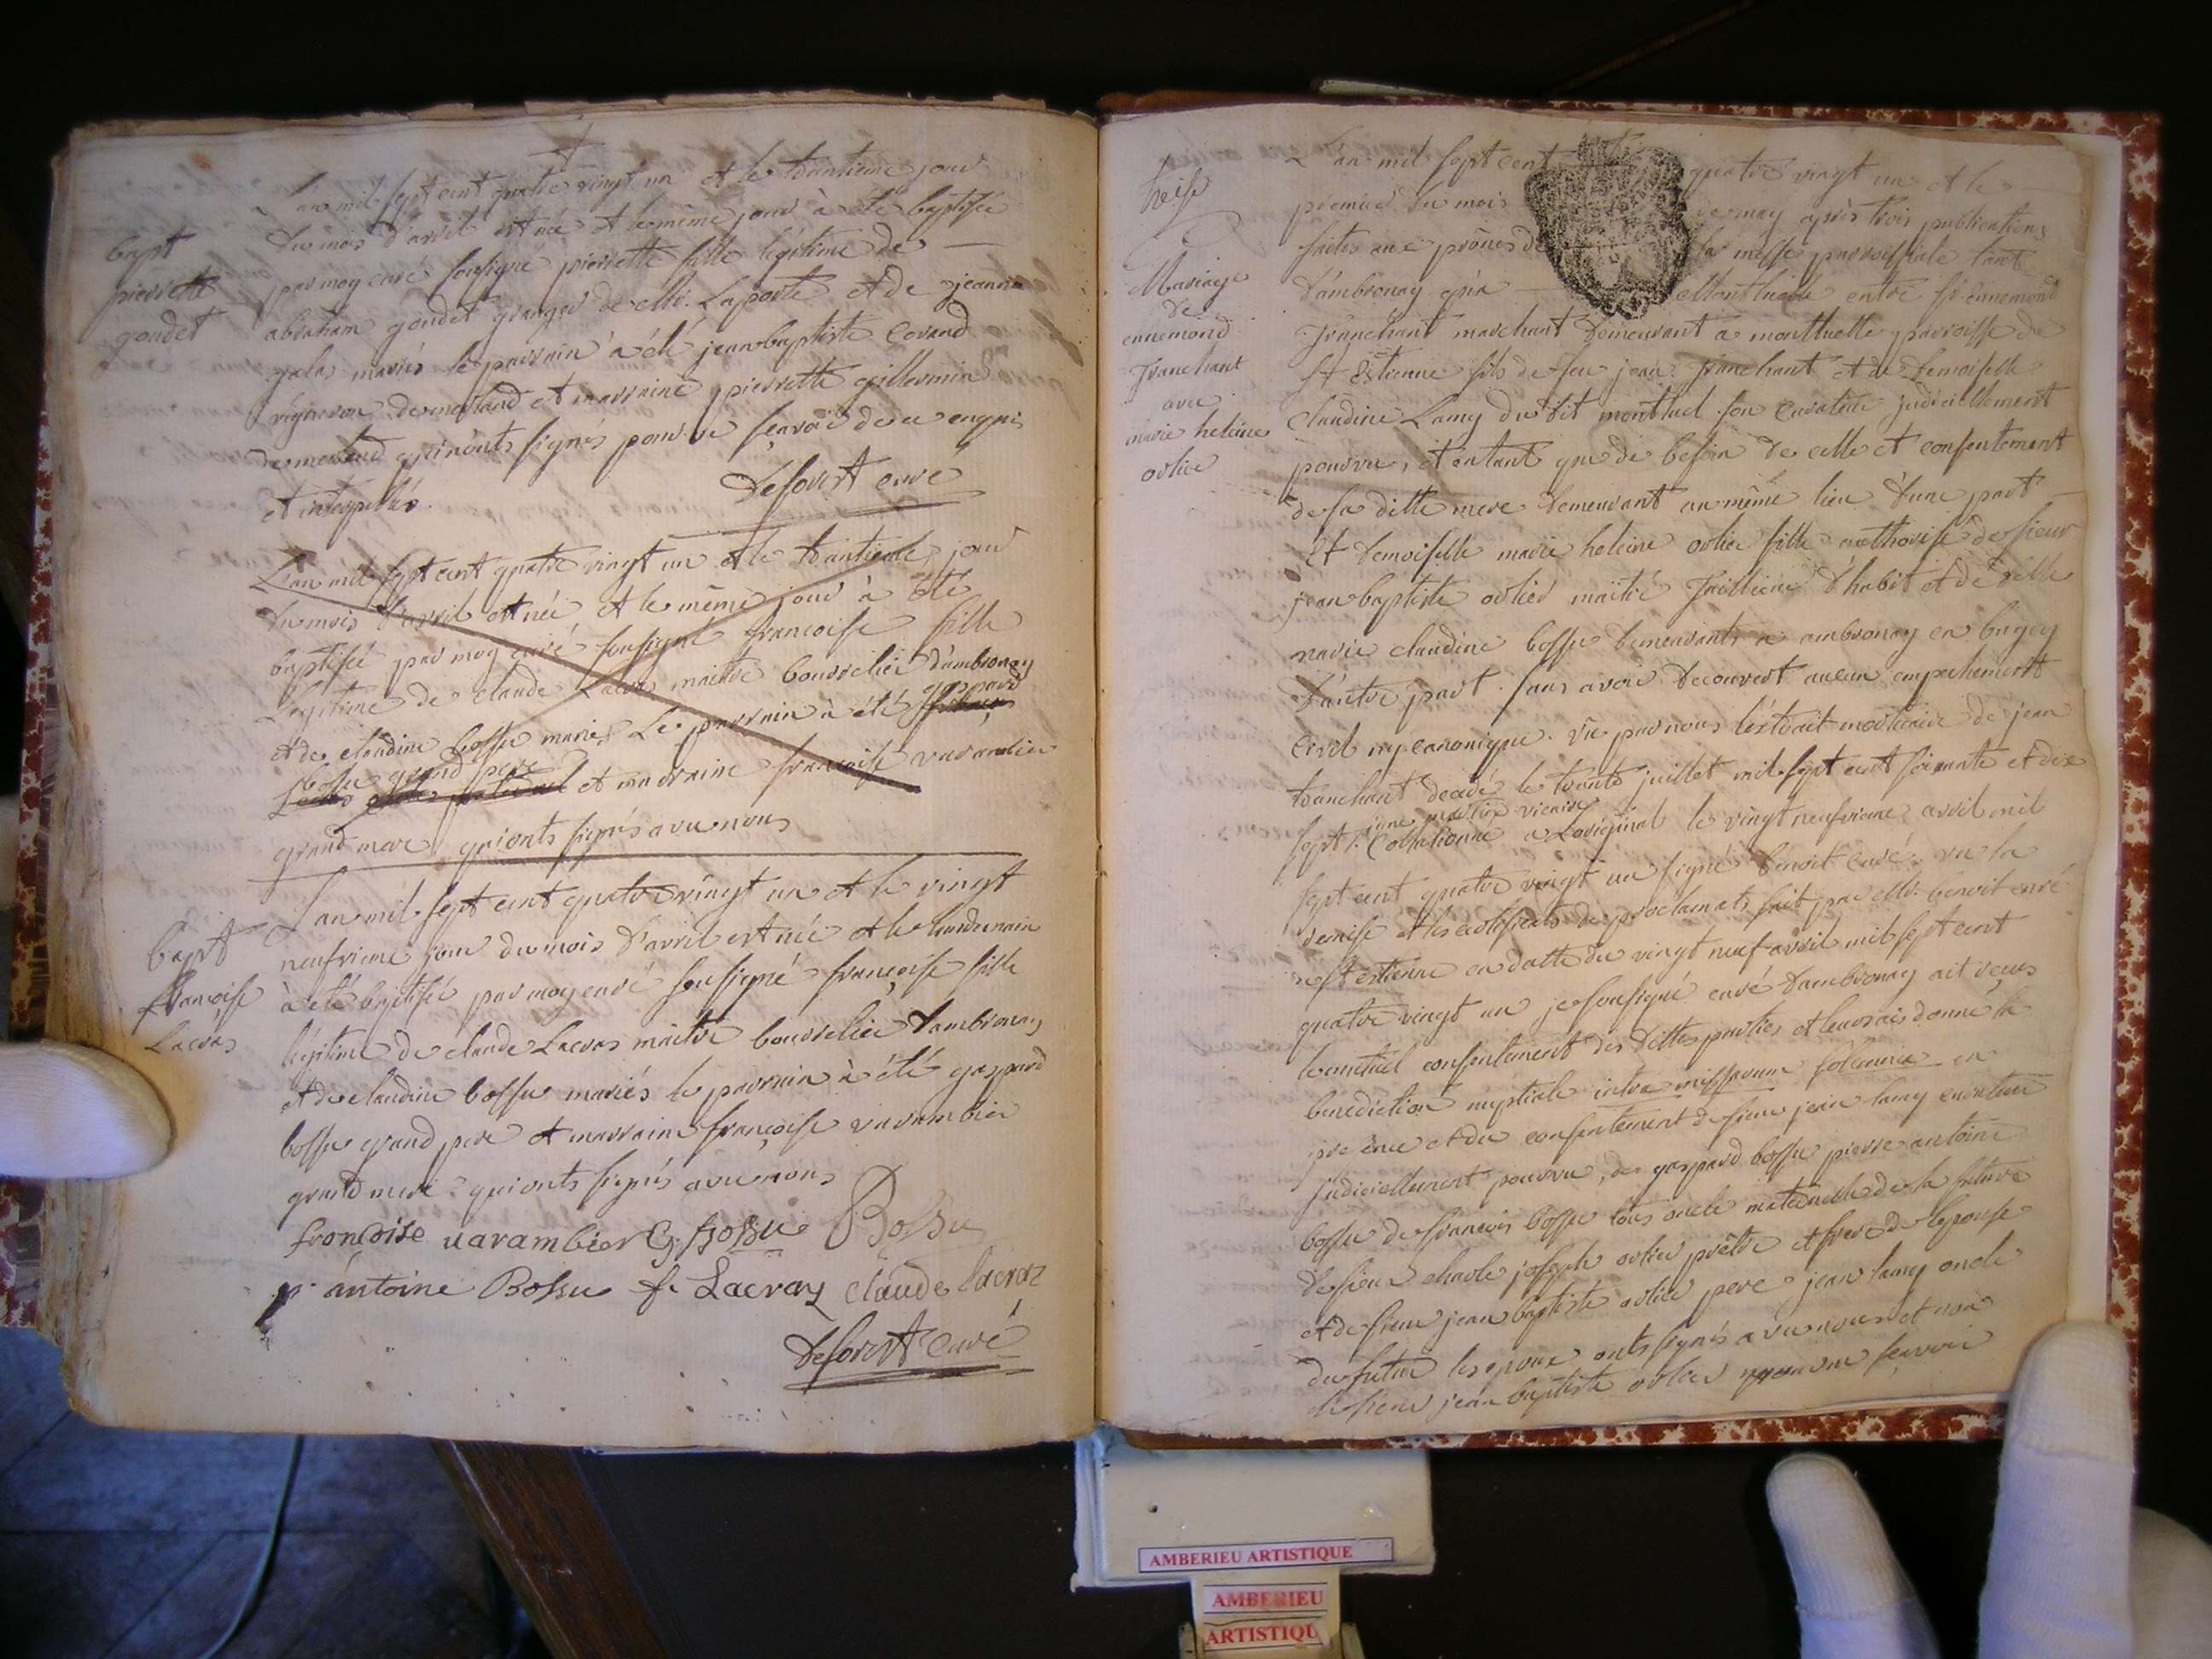 L'an mil sept cent quatre vingt un et le trantieme jour
du mois d'avril est née et le même jour à été baptisée
par moy curé soussigné pierrette fille légitime de
abraham goudet granger de Mr. Laporte et de jeanne
galas mariés le parrain à été jean baptiste Corand
vigneron de merland et marraine pierrette guillermin
de merland qui n'onts signés pour ne sçavoir de ce enquis
et interpellés.
Deforest curé
bapt
pierrette
goudet
L'an mil sept cent quatre vingt un et le trantieme jour
du mois d'avril est née et le même jour à été
baptisée par moy curé soussigné francoise fille
légitime de claude Lacras maitre bourrelier d'ambronay
et de claudine bossu mariés Le parrain à été gaspard
bossu grand pere
et marraine francoise varambier
grand mere qui onts signés avec nous
L'an mil sept cent quatre vingt un et le vingt
neufvieme jour du mois d'avril est née et le lendemain
à été baptisé par moy curé soussigné françoise fille
légitime de claude Lacras maitre bourrelier d'ambronay
et de claudine bossu mariés le parrain à été gaspard
bossu grand pere et marraine françoise varambier
grand mere qui onts signés avec nous
bapt
francoise
Lacras
francoise varambier G. Bossu Bossu
p. antoine Bossu f. Lacraz claude lacraz
Deforest Curé
treise
Mariage
de
ennemond
Franchant
avec
marie heleine
orlier
L'an mil sept cent quatre vingt un et le
premier du mois de may après trois publications
faites aux prônes de la messe parroissiale tant
d'ambronay qu'a Montluelle entre sr. ennemond
franchant marchant demeurant a montluelle parroisse de
st Estienne fils de feu jean franchant et de demoiselle
claudine Lamy du dit montluel son curateur judiciellement
pourvu, et entant que de besoin de celle et consentement
de sa ditte mere demeurant au même lieu d'une part
Et demoiselle marie heleine orlier fille authorisé de sieur
jean baptiste orlier maitre tailleur d'habit et de
marie claudine bossu demeurants a ambronay en bugey
d'autre part. sans avoir decouvert aucun empechement
civil ny canonique. vu par nous l'extrait mortuaire de jean
franchant decedé le trante juillet mil sept cent soixante et dix
sept. Collationné a L'original le vingt neufvieme avril mil
vicaire
sept cent quatre vingt un signé benoit curé. vu la
remise et les certificats de proclamats fait par Mr. benoit curé
de st estienne en datte du vingt neuf avril mil sept cent
quatre vingt un je soussigné curé d'ambronay ait reçus
le mutuel consentement des dittes parties et leurs ais donné la
benediction nuptiale intra missarum solemnia en
presence et du consentement de sieur jean lamy curateur
judiciellement pourvu, de gaspard bossu pierre antoine
bossu de francois bossu tous oncle maternelle de la future
de sieur charle joseph orlier prêtre et frere de l'epouse
et de sieur jean baptiste orlier pere jean lamy oncle
du futur les epoux onts signés avec nous et non
le sieur jean baptiste orlier pour ne sçavoir
AMBERIEU ARTISTIQUE
AMBERIEU
ARTISTIQU